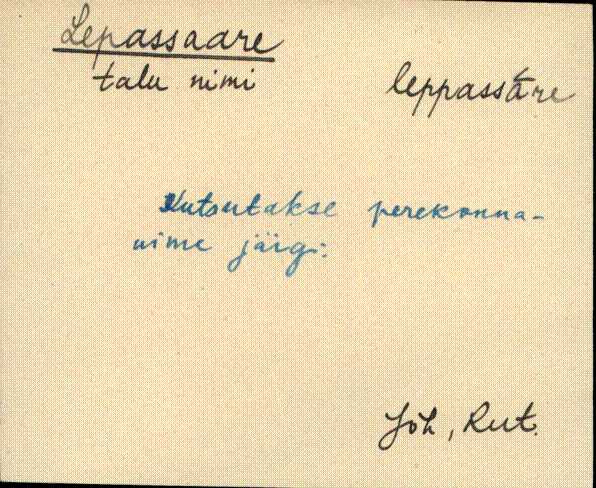 Lepassaare
talu nimi
leppassāre
Kutsutakse perekonna-
nime järgi.
Jõh, Rut.